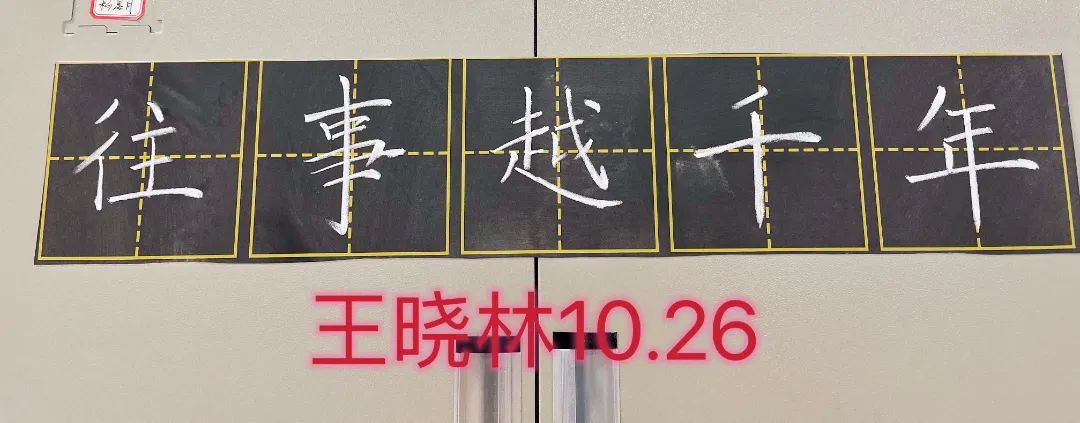 往事越千年
王晓林10.26